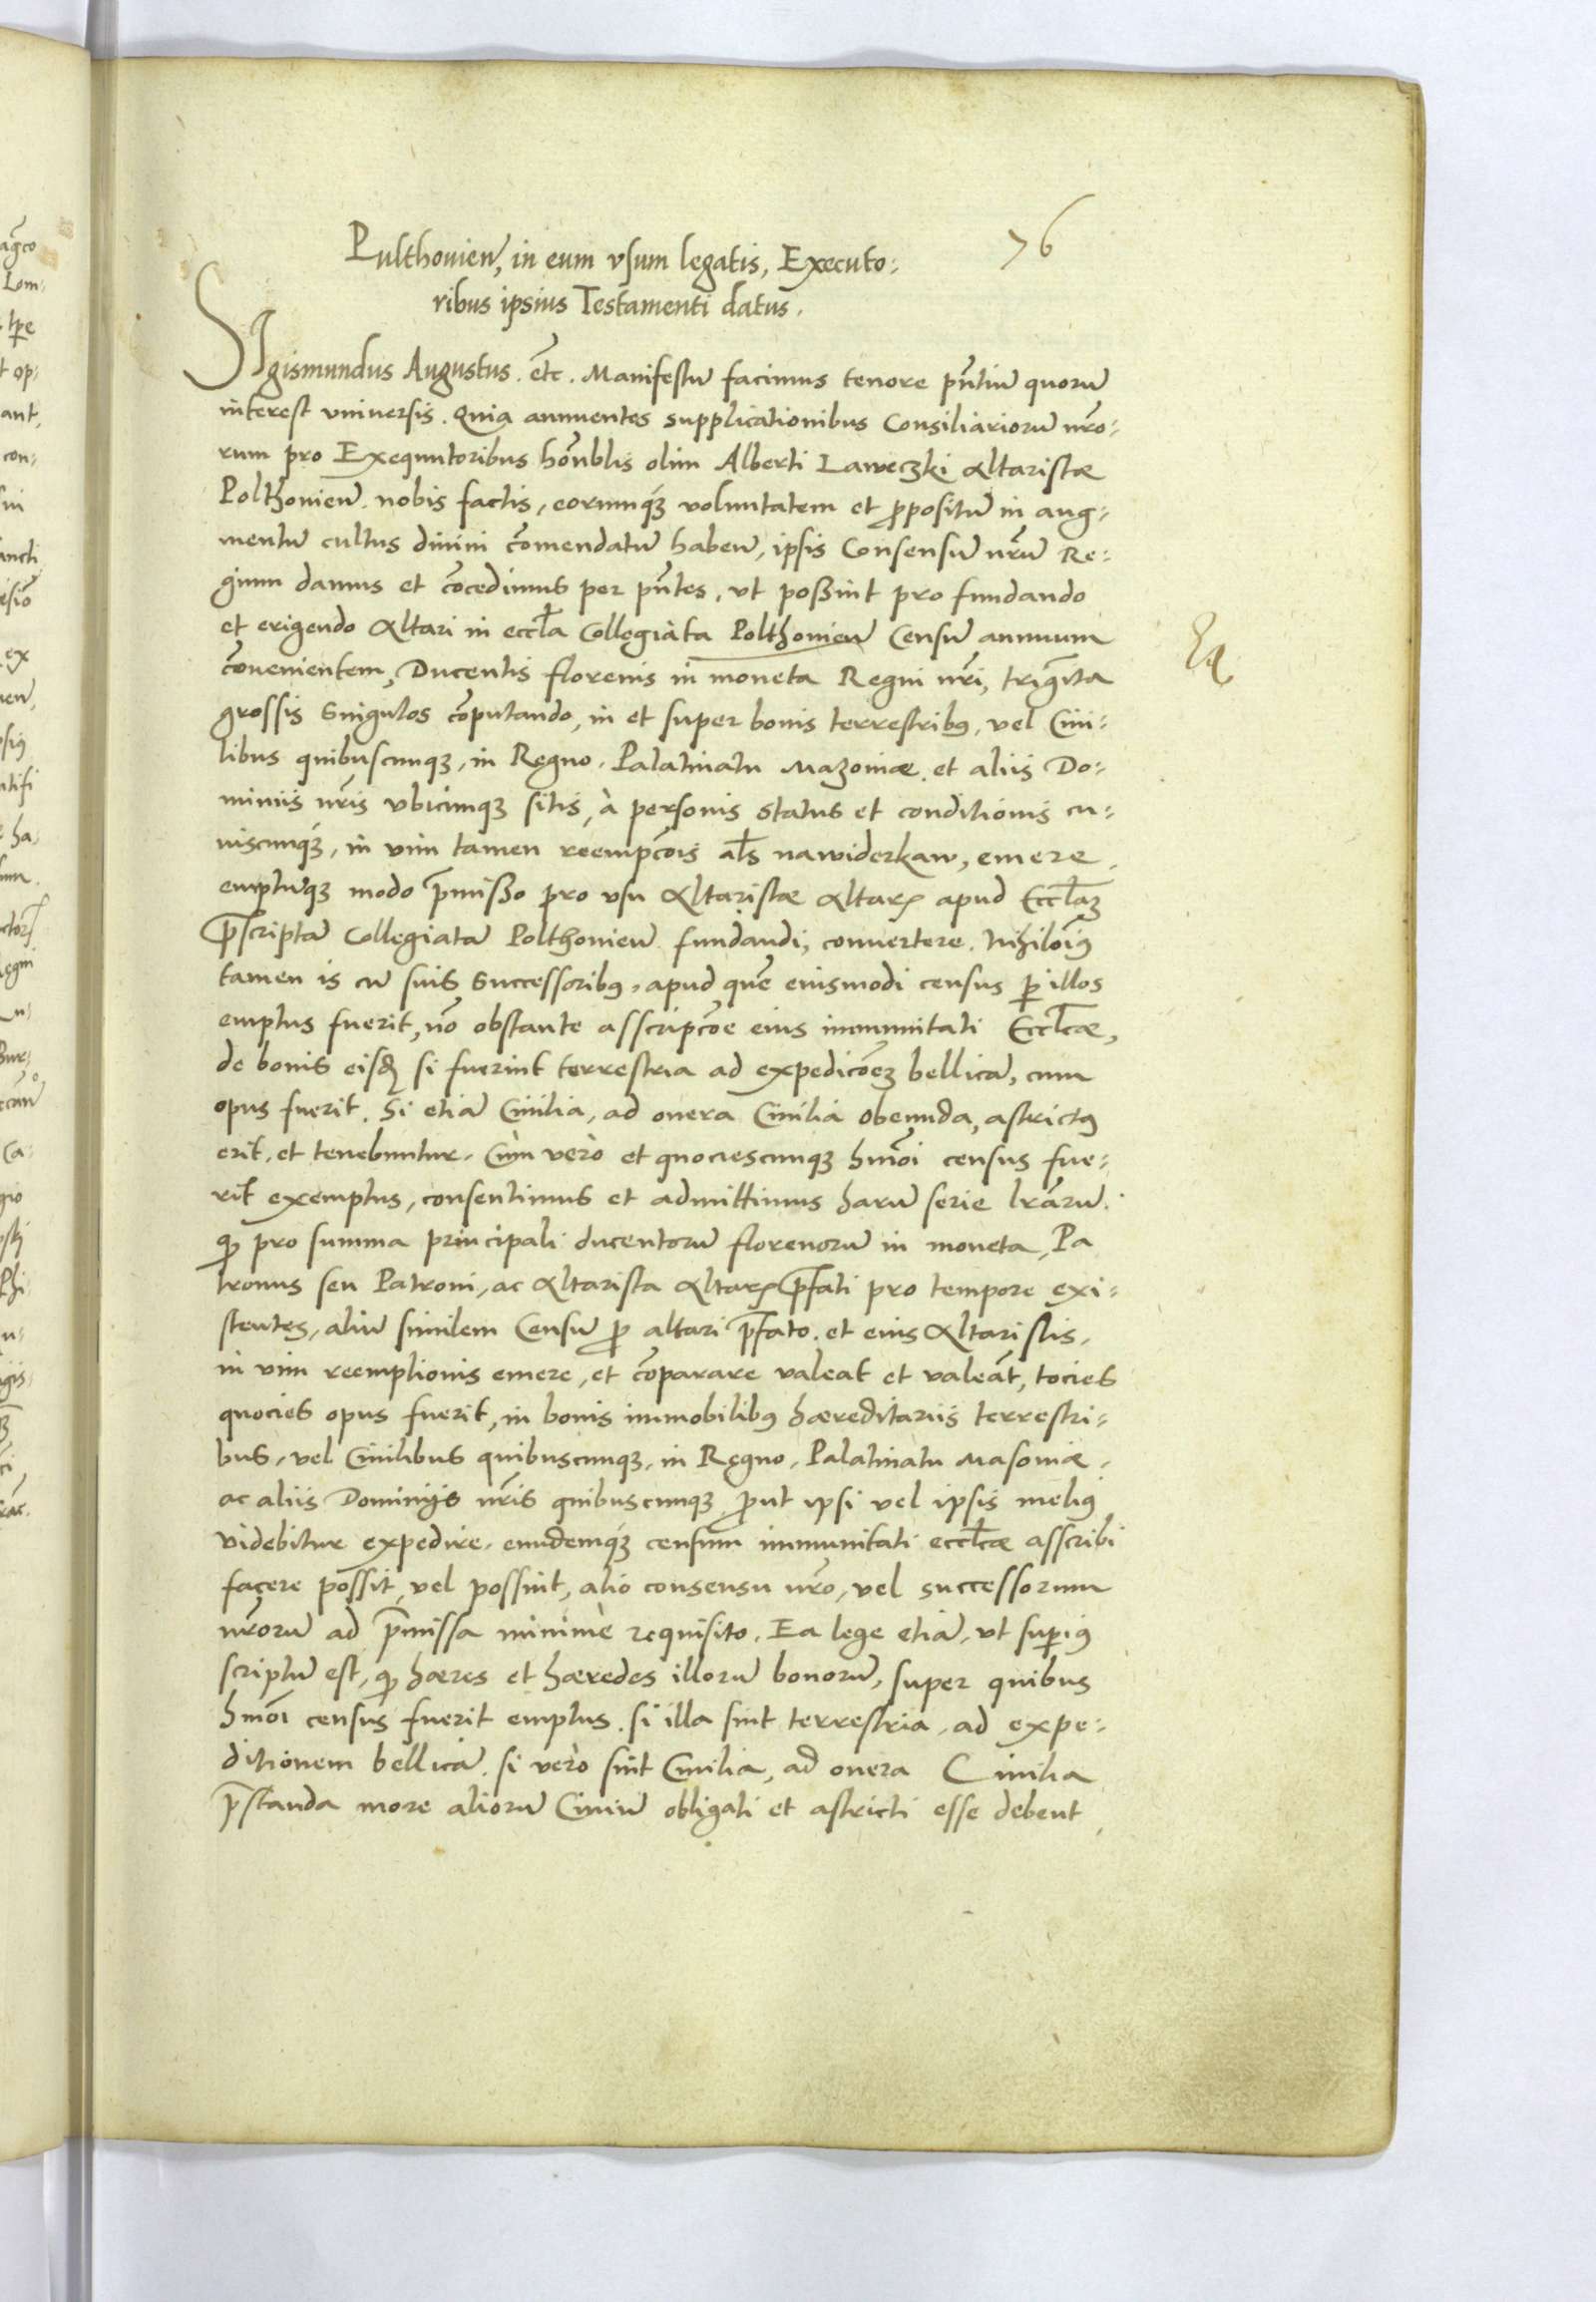 76
Pulthovien̄, in eum vsum legatis, Executo:
ribus ipsius Testamenti datus.
SIgismundus Augustus. etc̄. Manifestū facimus tenore pn̄tiū quorū
interest vniuersis. Quia annuentes supplicationibus Consiliariorū nr̄o:
rum pro Exequutoribus hon̄blis olim Alberti Laweczki Altaristæ
Polthovien̄. nobis factis, eorumq́ꝫ voluntatem et ꝓpositū in aug:
mentū cultus diuini com̄endatū haben̄, ipsis Consensū nr̄ū Re:
gium damus et cōcedimus per pn̄tes, vt poßint pro fundando
et erigendo Altari in eccl̄a Collegiata Polthovien̄ Censū annuum
cōuenientem, Ducentis florenis in moneta Regni nr̄i, trigīta
grossis singulos cōputando, in et super bonis terrestribꝰ, vel Ciui:
libus quibuscunqꝫ, in Regno, Palatinatu Mazouiæ et aliis Do:
miniis nr̄is vbicunqꝫ sitis, à personis status et conditionis cu:
iuscunq́ꝫ, in vim tamen reempcōis al̄s nawiderkaw, emere
emptūqꝫ modo p̄mißo pro vsu Altaristæ Altarꝭ apud Eccl̄aꝫ
p̄scriptā Collegiatā Polthovien̄ fundandi, conuertere. Nihilōiꝰ
tamen is cū suis successoribꝰ, apud quē eiusmodi census ꝑ illos
emptus fuerit, nō obstante asscripcōe eius immunitati Eccl̄cæ,
de bonis eisd̄ si fuerint terrestria ad expedicōeꝫ bellicā, cum
opus fuerit. Si etiā Ciuilia, ad onera Ciuilia obeunda, astrictꝰ
erit, et tenebuntur. Cùm verò et quociescunqꝫ hmōi census fue:
rit exemptus, consentimus et admittimus harū serie lr̄arū.
qꝫ pro summa principali ducentorū florenorū in moneta, Pa
tronus seu Patroni, ac Altarista Altarꝭ p̄fati pro tempore exi:
stentes, aliū similem Censū ꝓ altari p̄fato. et eius Altaristis,
in vim reemptionis emere, et cōparare valeat et valeāt, tocies
quocies opus fuerit, in bonis immobilibꝰ hæreditariis terrestri:
bus, vel Ciuilibus quibuscunqꝫ, in Regno, Palatinatu Masouiæ,
ac aliis Dominijs nr̄is quibuscunqꝫ ꝓut ipsi vel ipsis meliꝰ
videbitur expedire, eundemq́ꝫ censum immunitati eccl̄cæ asscribi
facere possit, vel possint, alio consensu nr̄o, vel successorum
nr̄orū ad p̄missa minimè requisito. Ea lege etiā, vt suꝑiꝰ
scriptū est, qꝫ hæres et hæredes illorū bonorū, super quibus
hmōi census fuerit emptus. si illa sint terrestria, ad expe:
ditionem bellicā. si verò sint Ciuilia, ad onera Ciuilia
p̄standa more aliorū Ciuiū obligati et astricti esse debent